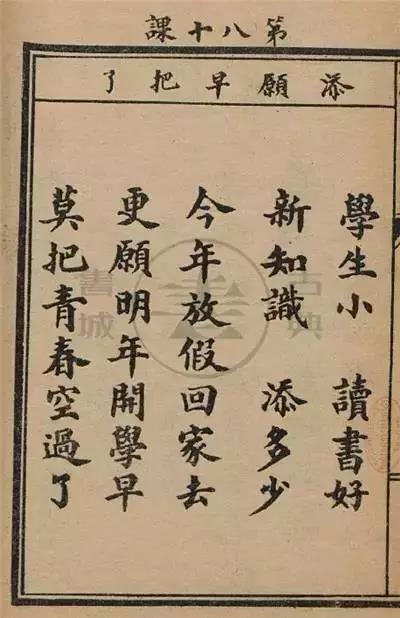 第八十課
添願早把了
學生小　讀書好
新知識　添多少
今年放假回家去
更願明年開學早
莫把青春空過了
古典
書城